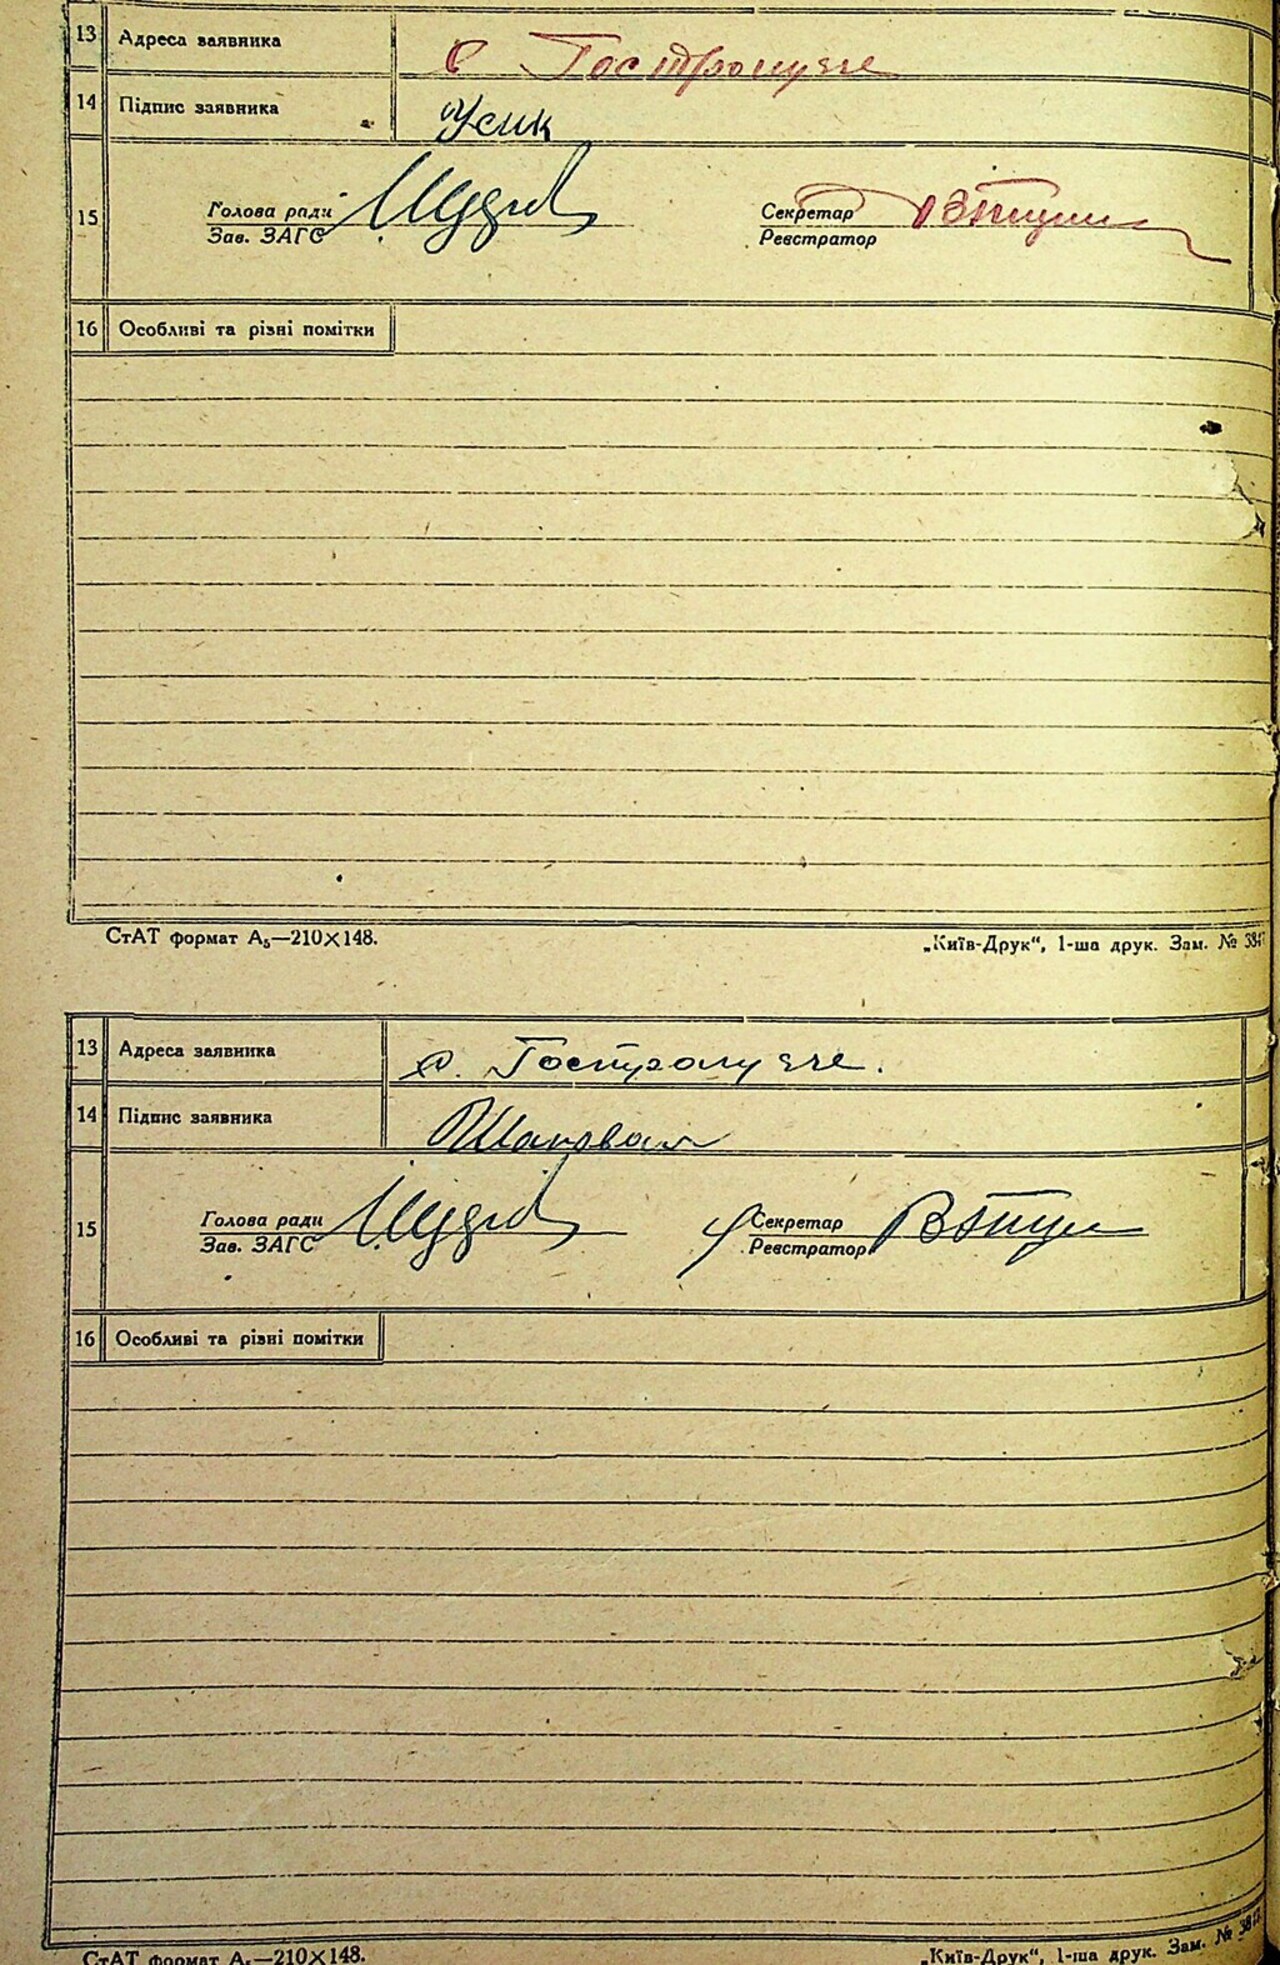 13 Адреса заявника с Гостролуччє
14 Підпис заявника Усик
15 Голова ради Секретар
Зав. ЗАГС Реєстратор
16 Особливі та різні помітки
СтАТ формат А₅—210×148. „Київ-Друк“, 1-ша друк. Зам. №
13 Адреса заявника с. Гостролуччє.
14 Підпис заявника
15 Голова ради Секретар
Зав. ЗАГС Реєстратор
16 Особливі та різні помітки
СтАТ формат А₅—210×148. „Київ-Друк“, 1-ша друк. Зам. №